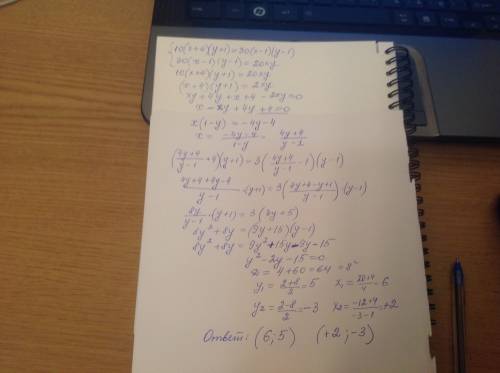 {10(x+4)(y+1)=30(x-1)(y-1)
30(x-1)(y-1)=20xy
10(x+4)(y+1)=20xy
(x+4)(y+1)=2xy
xy+4y+x+4-2xy=0
x-xy+4y+4=0
x(1-y)=-4y-4
x = (-4y-4)/(1-y) = (4y+4)/(y-1)
((4y+4)/(y-1)+4)(y+1)=3((4y+4)/(y-1)-1)(y-1)
(4y+4+4y-4)/(y-1)·(y+1)=3((4y+4-y+1)/(y-1))(y-1)
8y/(y-1)·(y+1)=3(3y+5)
8y²+8y=(9y+15)(y-1)
8y²+8y=9y²+15y-9y-15
y²-2y-15=0
D=4+60=64=8²
y₁=(2+8)/2=5 x₁=(20+4)/4=6
y₂=(2-8)/2=-3 x₂=(-12+4)/(-3-1)=+2
Ответ: (6;5) (+2;-3)